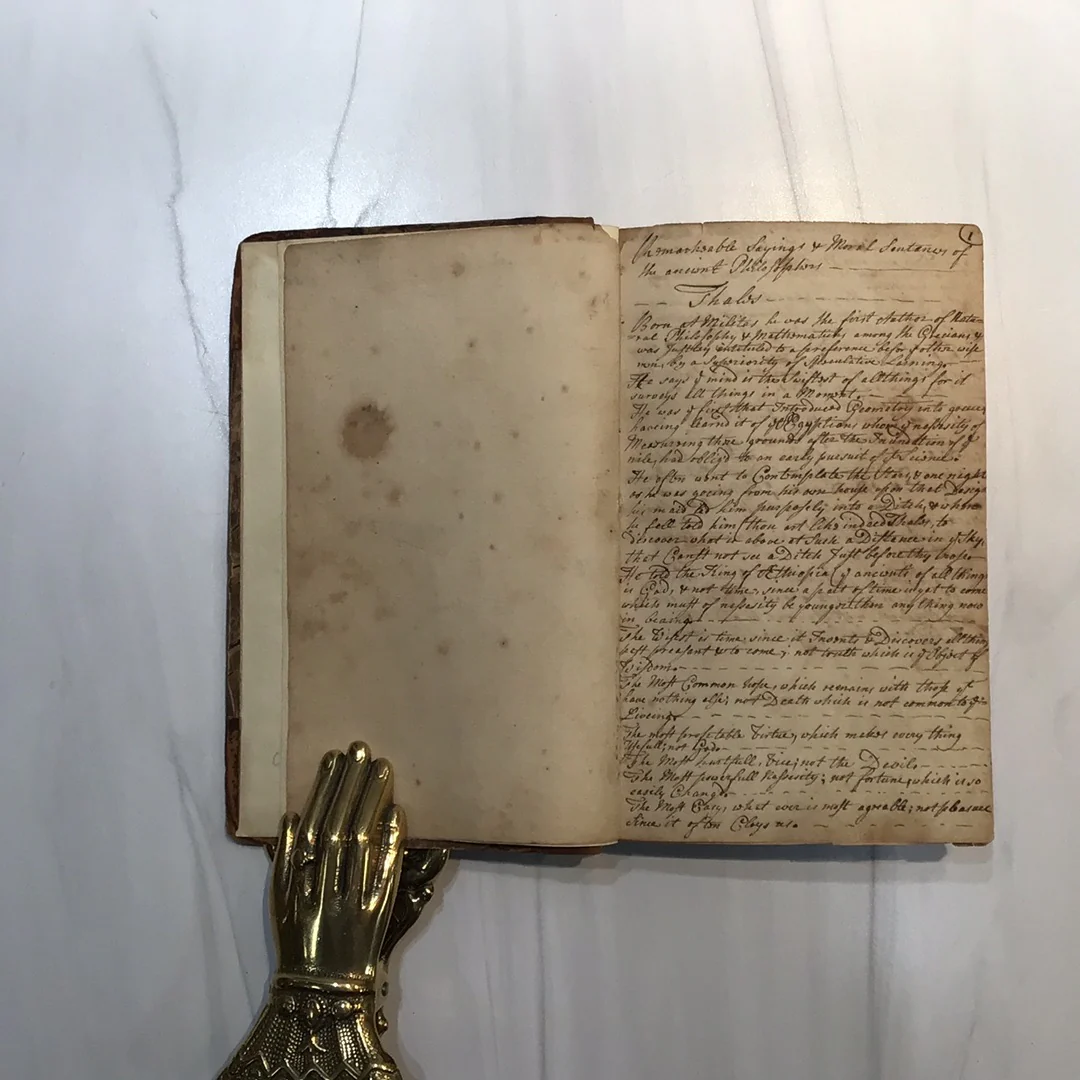 1
Remarkable Sayings & Moral Sentances of
the ancient Philosophers
Thales
Born At Milites he was the first Author of Natu-
-ral Philosophy & Mathematick, among the Grecians, &
was Justley entituled to a preference befor ye other wise
men, by a Superiority of Speculative Learning.
He says ye mind is the swiftest of all things for it
surveys all things in a Moment.
He was ye first that Introduced Geometry into greece
haveing learnd it of ye Egyptians whom ye nessesity of
Measurring there grounds after the Inundation of ye
nile, had oblig'd to an early pursuit of yt Science.
He often went to Contemplate the Stars, & one night
as he was goeing from his own house upon that Design
his maid led him purposely into a Ditch, & when
he fell told him thou art like indeed Thales, to
discover what is above at Such a Distance in ye Sky,
that Canst not see a Ditch Just before thy
He told the King of Ethiopia (ye ancients of all things
is God, & not time, since a part of time is yet to come
which must of nessesity be younger then any thing now
in beaing
The Wisest is time since it Invents & Discovers all things
past preasent & to come; not truth which is ye Object of
Wisdom.
The Most Common hope, which remains with those yt
have nothing else; not Death which is not common to ye
Liveing.
The most profetable Virtue, which makes every thing
Usefull; not Gods
The Most hurtfull, Vice; not the Devils
The Most powerfull Nessesity; not fortune, which is so
easily Chang'd
The Most Easy, what ever is most agreable; not pleasure
Since it often Cloys us.